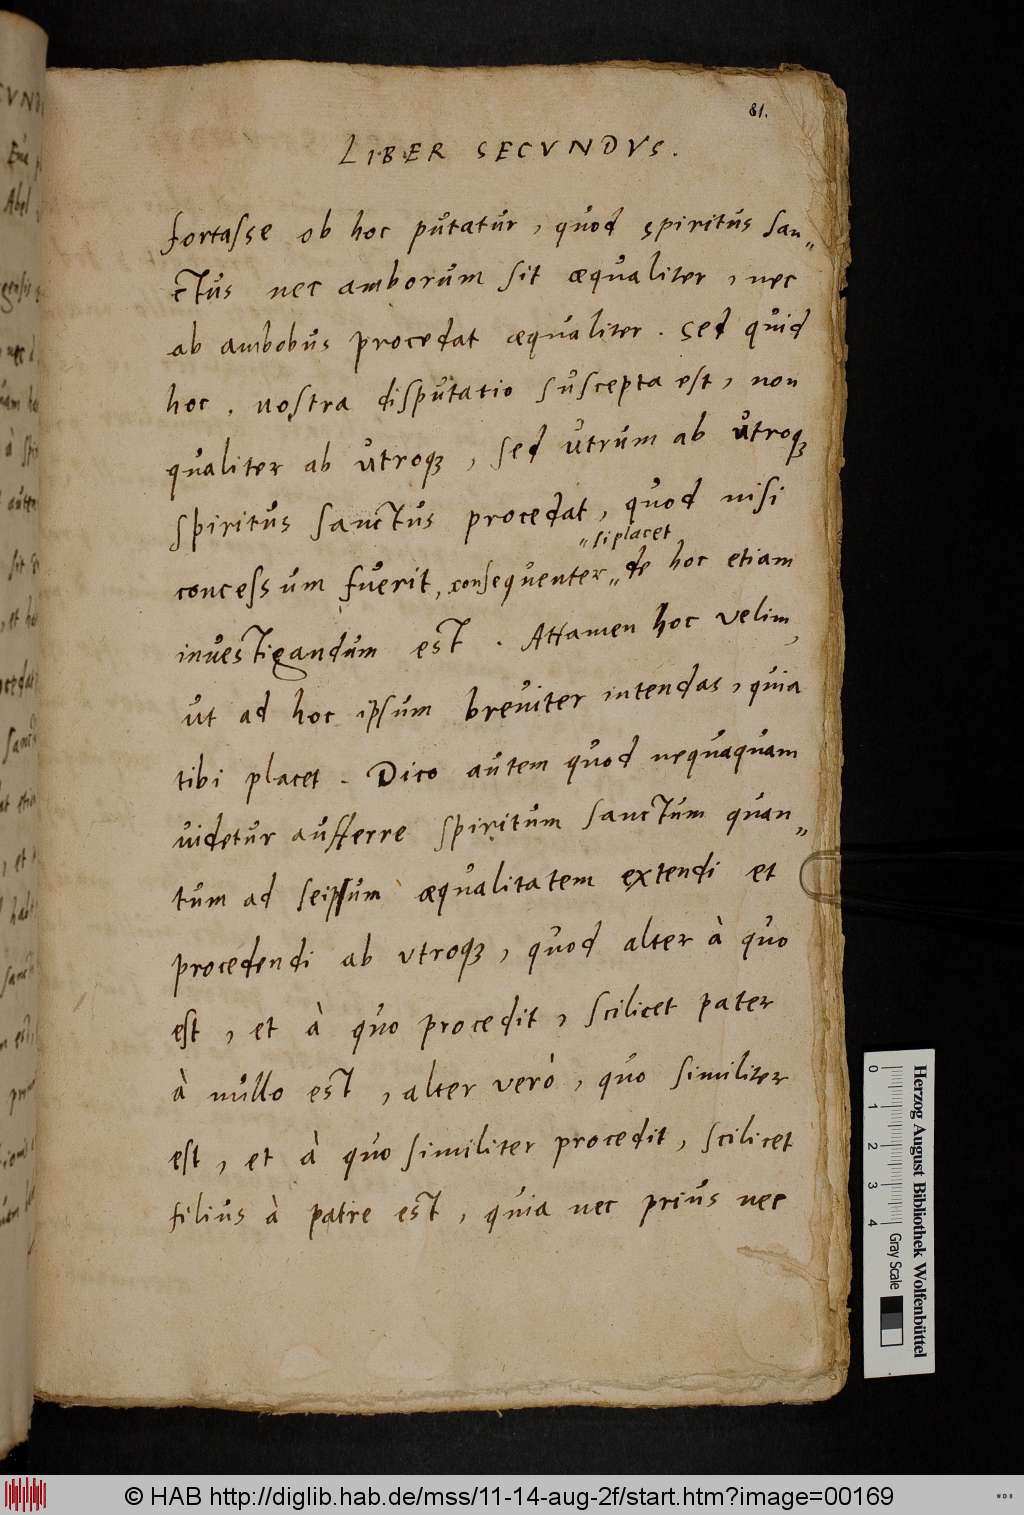 81.
LIBER SECVNDVS.
fortasse ob hoc putatur, quod spiritus san„
ctus nec amborum sit æqualiter, nec
ab ambobus procedat æqualiter. Sed quid
hoc. nostra disputatio suscepta est, non
qualiter ab utroq, sed utrum ab utroq
spiritus sanctus procedat, quod nisi
„si placet
concessum fuerit, consequenter„ de hoc etiam
inuestigandum est. Attamen hoc velim,
ut ad hoc ipsum breuiter intendas, quia
tibi placet. Dico autem quod nequaquam
uidetur aufferre spiritum sanctum quan„
tum ad seipsum æqualitatem extendi et
procedendi ab vtroq, quod alter à quo
est, et à quo procedit, scilicet pater
à nullo est, alter verò, quo similiter
est, et à quo similiter procedit, scilicet
filius à patre est, quia nec prius nec
Herzog August Bibliothek Wolfenbüttel
0 1 2 3 4 Gray Scale
© HAB http://diglib.hab.de/mss/11-14-aug-2f/start.htm?image=00169